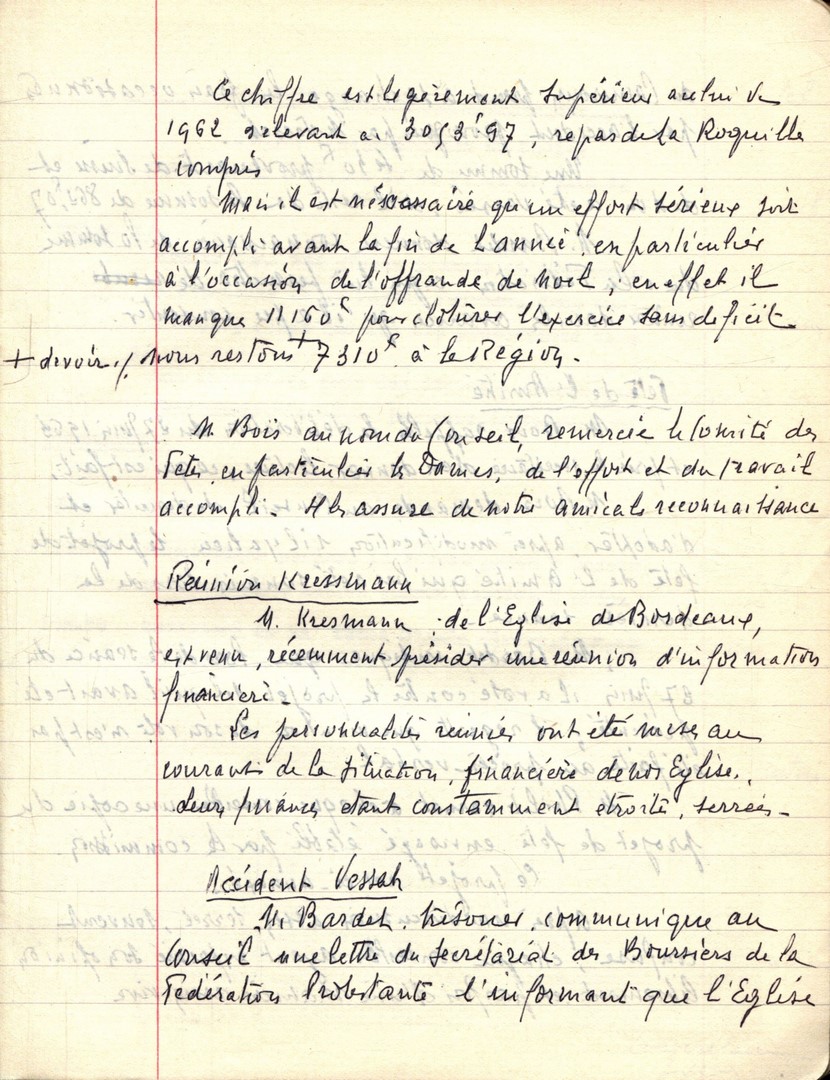 Ce chiffre est légèrement supérieur à celui de
1962 s'élevant à 3053f.97, repas de la Roquille
compris
Mais il est néscessaire qu'un effort sérieux soit
accompli avant la fin de l'année, en particulier
à l'occasion de l'offrande de Noël, en effet il
manque 11160f pour clôturer l'exercice sans déficit
+ devoir ./. nous restons + 7310f à la Région.
M. Bois au nom du Conseil, remercie le Comité des
Fêtes, en particulier les Dames, de l'effort et du travail
accompli. Il les assure de notre amicale reconnaissance
Réunion Kressmann
M. Kresmann, de l'Eglise de Bordeaux,
est venu, récemment présider une réunion d'information
financière.
Les personnalités réunies ont été mises au
courant de la situation, financière de nos Eglise,
leurs finances étant constamment étroite, serrées.
Accident Vessah
M. Bardet, trésorier, communique au
Conseil une lettre du secrétariat des Boursiers de la
Fédération Protestante l'informant que l'Eglise